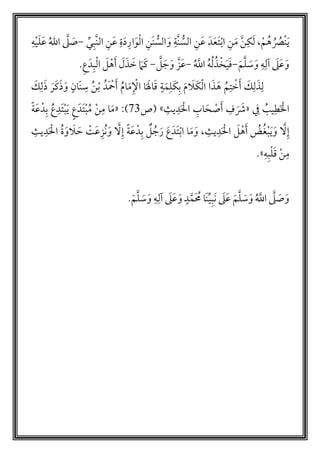 يَنْصُرُهُمْ، لَكِنَّ مَنِ ابْتَعَدَ عَنِ السُّنَّةِ وَالسُّنَنِ الْوَارِدَةِ عَنِ النَّبِيِّ - صَلَّى اللهُ عَلَيْهِ
وَعَلَى آلِهِ وَسَلَّمَ- فَيَخْذُلُهُ اللَّهُ - عَزَّ وَجَلَّ - كَمَا خَذَلَ أَهْلَ الْبِدَعِ.
لِذَلِكَ أَخْتِمُ هَذَا الْكَلَامَ بِكَلِمَةٍ قَالَهَا الْإِمَامُ أَحْمَدُ بْنُ سِنَانٍ وَذَكَرَ ذَلِكَ
الْخَطِيبُ فِي «شَرَفِ أَصْحَابِ الْحَدِيثِ» (ص73): «مَا مِنْ مُبْتَدِعٍ يَبْتَدِعُ بِدْعَةً
إِلَّا وَيُبْغُضُ أَهْلَ الْحَدِيثِ، وَمَا ابْتَدَعَ رَجُلٌ بِدْعَةً إِلَّا وَنُزِعَتْ حَلَاوَةُ الْحَدِيثِ
مِنْ قَلْبِهِ».
وَصَلَّى اللَّهُ وَسَلَّمَ عَلَى نَبِيِّنَا مُحَمَّدٍ وَعَلَى آلِهِ وَسَلَّمَ.